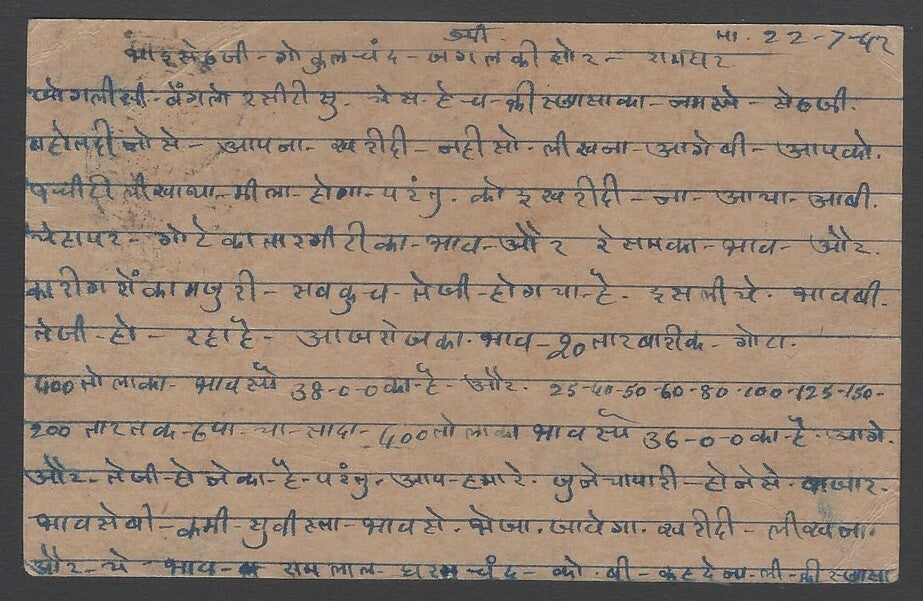 श्री. ता. 22-7-42
भाइ सेठजी - गोकुल चंद - जुगल कीशोर - रामघर
जोगलीखी - बेंगलो रसीटी सु. का - नमस्ते - सेठजी.
बहोत दीनो से - आपना - खरीदी - नही सो - लीखना - आगे बी - आपको.
चीठी लीखाथा - मीला - होगा - परंतु. कोइ खरीदी - ना - आया - आबी.
गोटे का तार का - भाव - और रेसम का - भाव - और.
कारीगरों का मजुरी - सब कुच - तेजी - होगया - है. इसलीये. भाव बी.
तेजी - हो - रहा है - आज रोज का. भाव - 20 तार बारीक - गोटा.
400 तोला का - भाव रुपे 38-0-0 का - है - और. 25-40-50-60-80-100-125-150-
200 तार तक - सादा - 400 तोला का भाव रुपे 36-0-0 का - है. आगे.
और - तेजी - होने का - है - परंतु. आप - हमारे. जुने वापारी - होने से. बाजार.
भाव से बी - कमी - भाव से. भेजा. जावेगा. खरीदी - लीखना.
और - ये - भाव - राम लाल - धरम चंद - को. बी - कह देना.